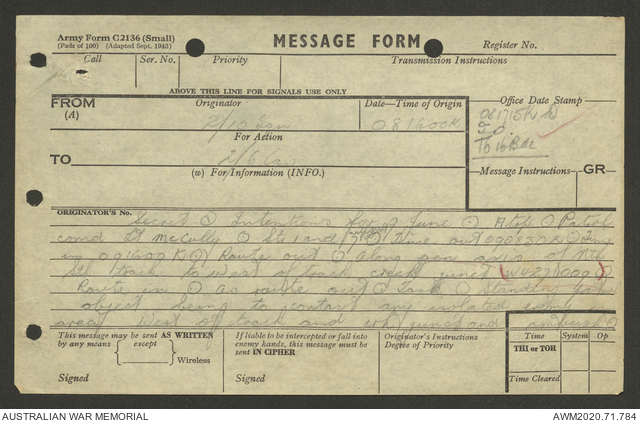 Army Form C2136 (Small)
(Pads of 100) (Adapted Sept. 1943)
MESSAGE FORM
Register No.
Call Ser. No. Priority Transmission Instructions
ABOVE THIS LINE FOR SIGNALS USE ONLY
FROM
(A)
Originator
Date—Time of Origin
Office Date Stamp
081600K
For Action
TO
(w) For/Information (INFO.)
Message Instructions GR
ORIGINATOR'S No.
Secret O Intentions for June O Patrol
comd Lt McCully O Str 1 and O Time out 090830K O Time
in 091600K O Route out O Along gen axis of
track to west of track creek junct (W427009) O
Route in O as route out O Task O Standing
object being to contact any isolated enemy in
area west of track and creek junct and
This message may be sent AS WRITTEN
by any means except
Wireless
Signed
If liable to be intercepted or fall into
enemy hands, this message must be
sent IN CIPHER
Signed
Originator's Instructions
Degree of Priority
Time System Op
THI or TOR
Time Cleared
AUSTRALIAN WAR MEMORIAL
AWM2020.71.784